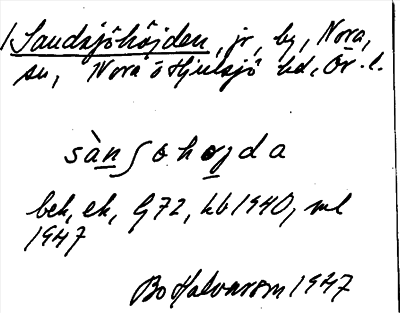 Sandsjöhöjden, jr, by, Nora,
sn, Nora o Hjulsjö bd, Ör. l.
sànʃöhøjda
bek, ek, G72, kb 1940, ml
1947
Bo Halvarson 1947